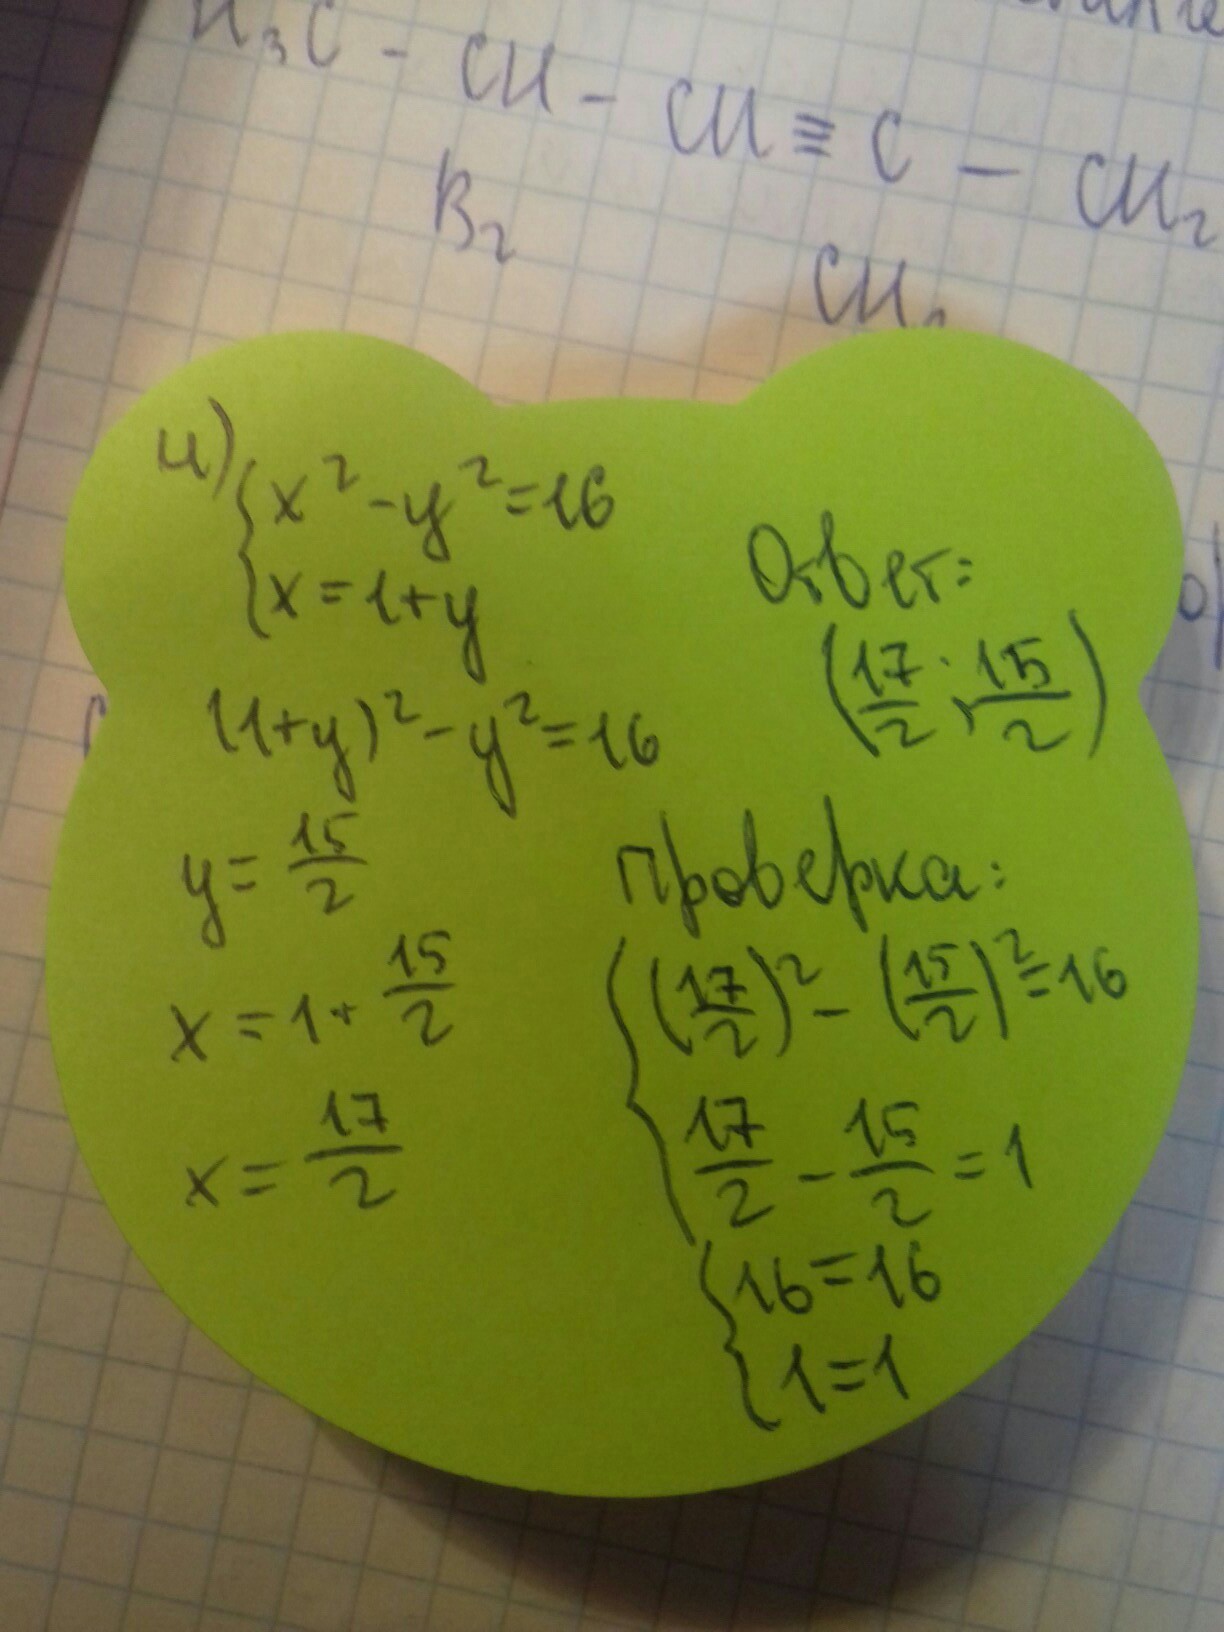 H₃C - CH - CH ≡ C - CH₂
Br
CH
и)
{x² - y² = 16
{x = 1 + y
(1+y)² - y² = 16
y = 15/2
x = 1 + 15/2
x = 17/2
Ответ:
(17/2; 15/2)
Проверка:
{(17/2)² - (15/2)² = 16
17/2 - 15/2 = 1
{16 = 16
1 = 1